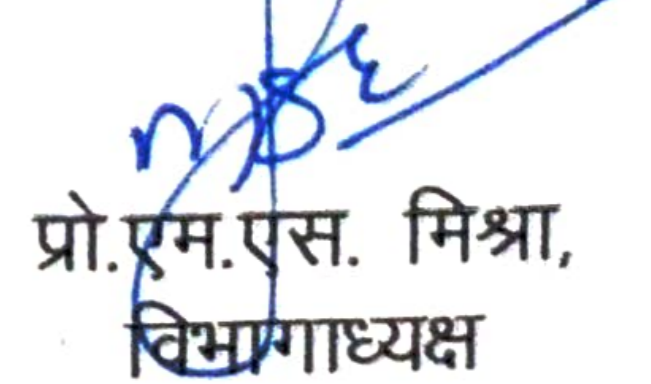 प्रो.एम.एस. मिश्रा,
विभागाध्यक्ष